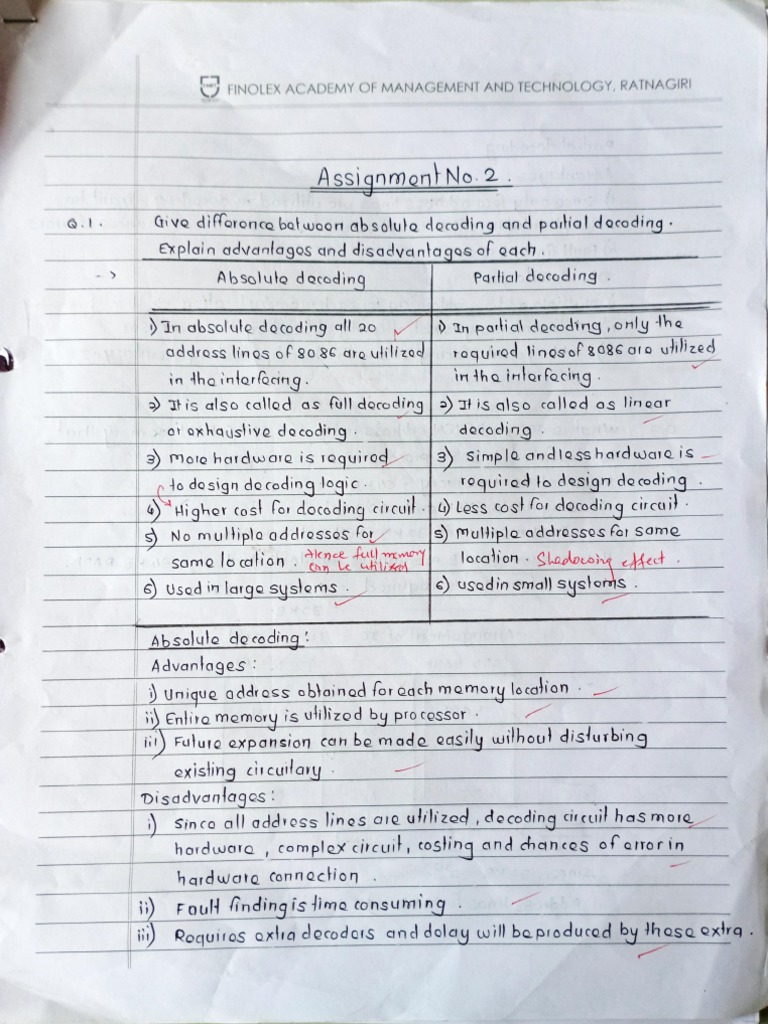 FINOLEX ACADEMY OF MANAGEMENT AND TECHNOLOGY, RATNAGIRI
Assignment No. 2.
Q.1. Give difference between absolute decoding and partial decoding.
Explain advantages and disadvantages of each.
-> Absolute decoding
1) In absolute decoding all 20
address lines of 8086 are utilized
in the interfacing.
2) It is also called as full decoding
or exhaustive decoding.
3) More hardware is required
to design decoding logic.
4) Higher cost for decoding circuit.
5) No multiple addresses for
same location. Hence full memory
can be utilised
6) Used in large systems.
Partial decoding.
1) In partial decoding, only the
required lines of 8086 are utilized
in the interfacing.
2) It is also called as linear
decoding.
3) Simple and less hardware is
required to design decoding.
4) Less cost for decoding circuit.
5) Multiple addresses for same
location. Shadowing effect.
6) used in small systems.
Absolute decoding:
Advantages:
i) Unique address obtained for each memory location.
ii) Entire memory is utilized by processor.
iii) Future expansion can be made easily without disturbing
existing circuitary.
Disadvantages:
i) Since all address lines are utilized, decoding circuit has more
hardware, complex circuit, costing and chances of error in
hardware connection.
ii) Fault finding is time consuming.
iii) Requires extra decoders and delay will be produced by these extra.